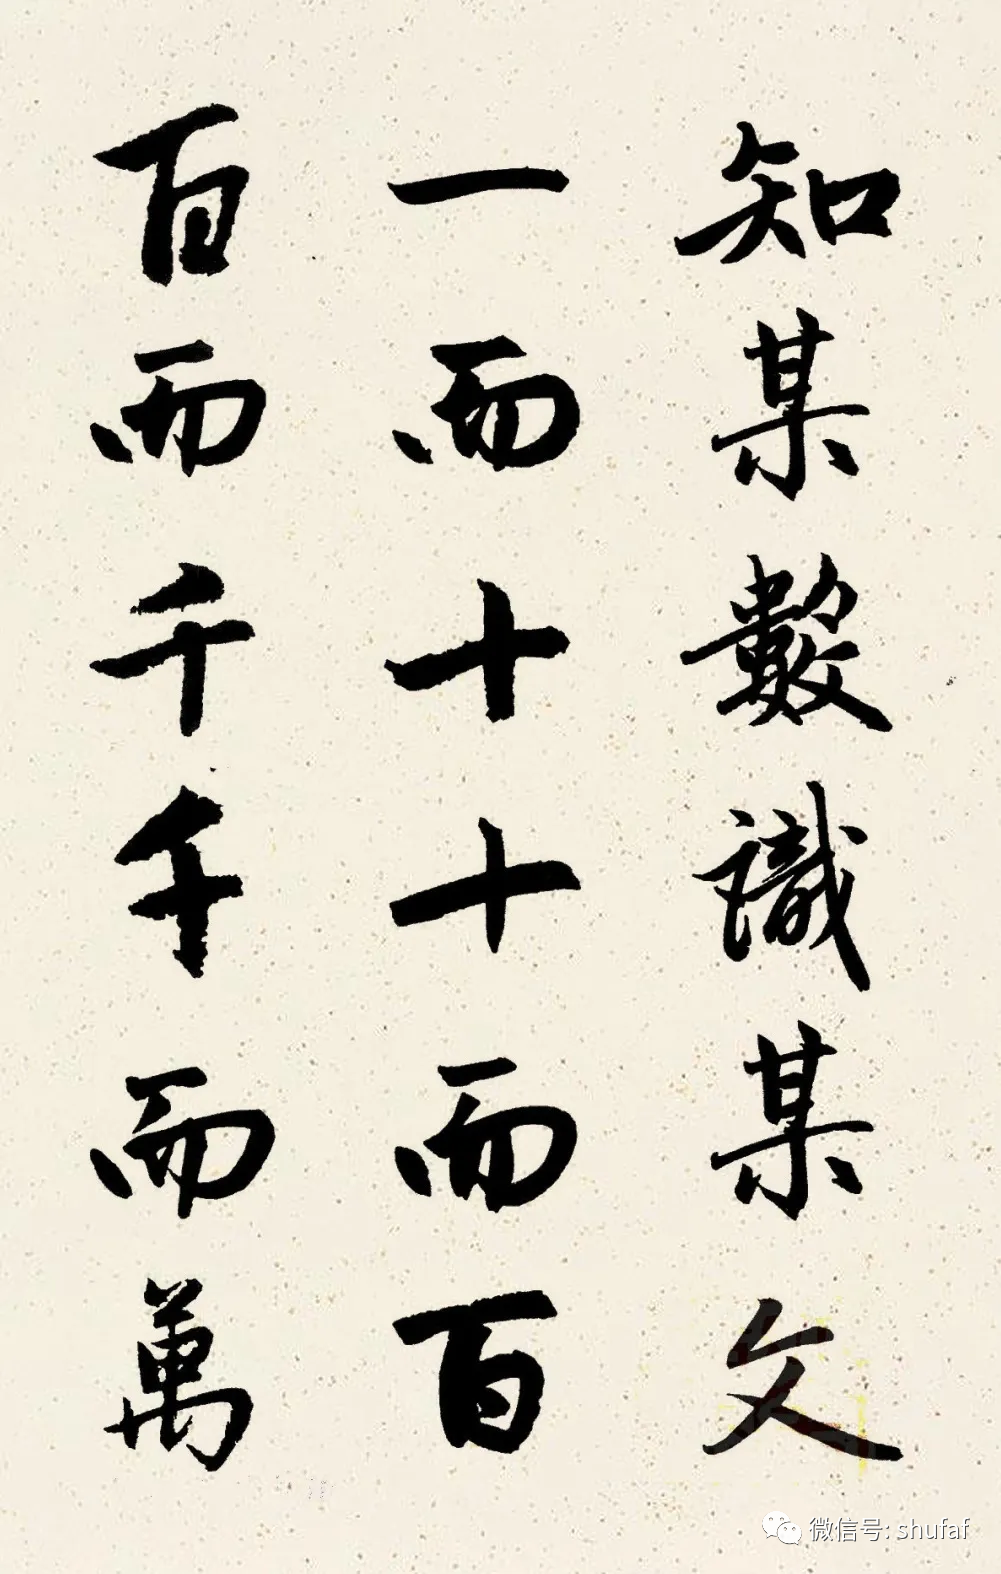 知某數識某文
一而十十而百
百而千千而萬
微信号: shufaf